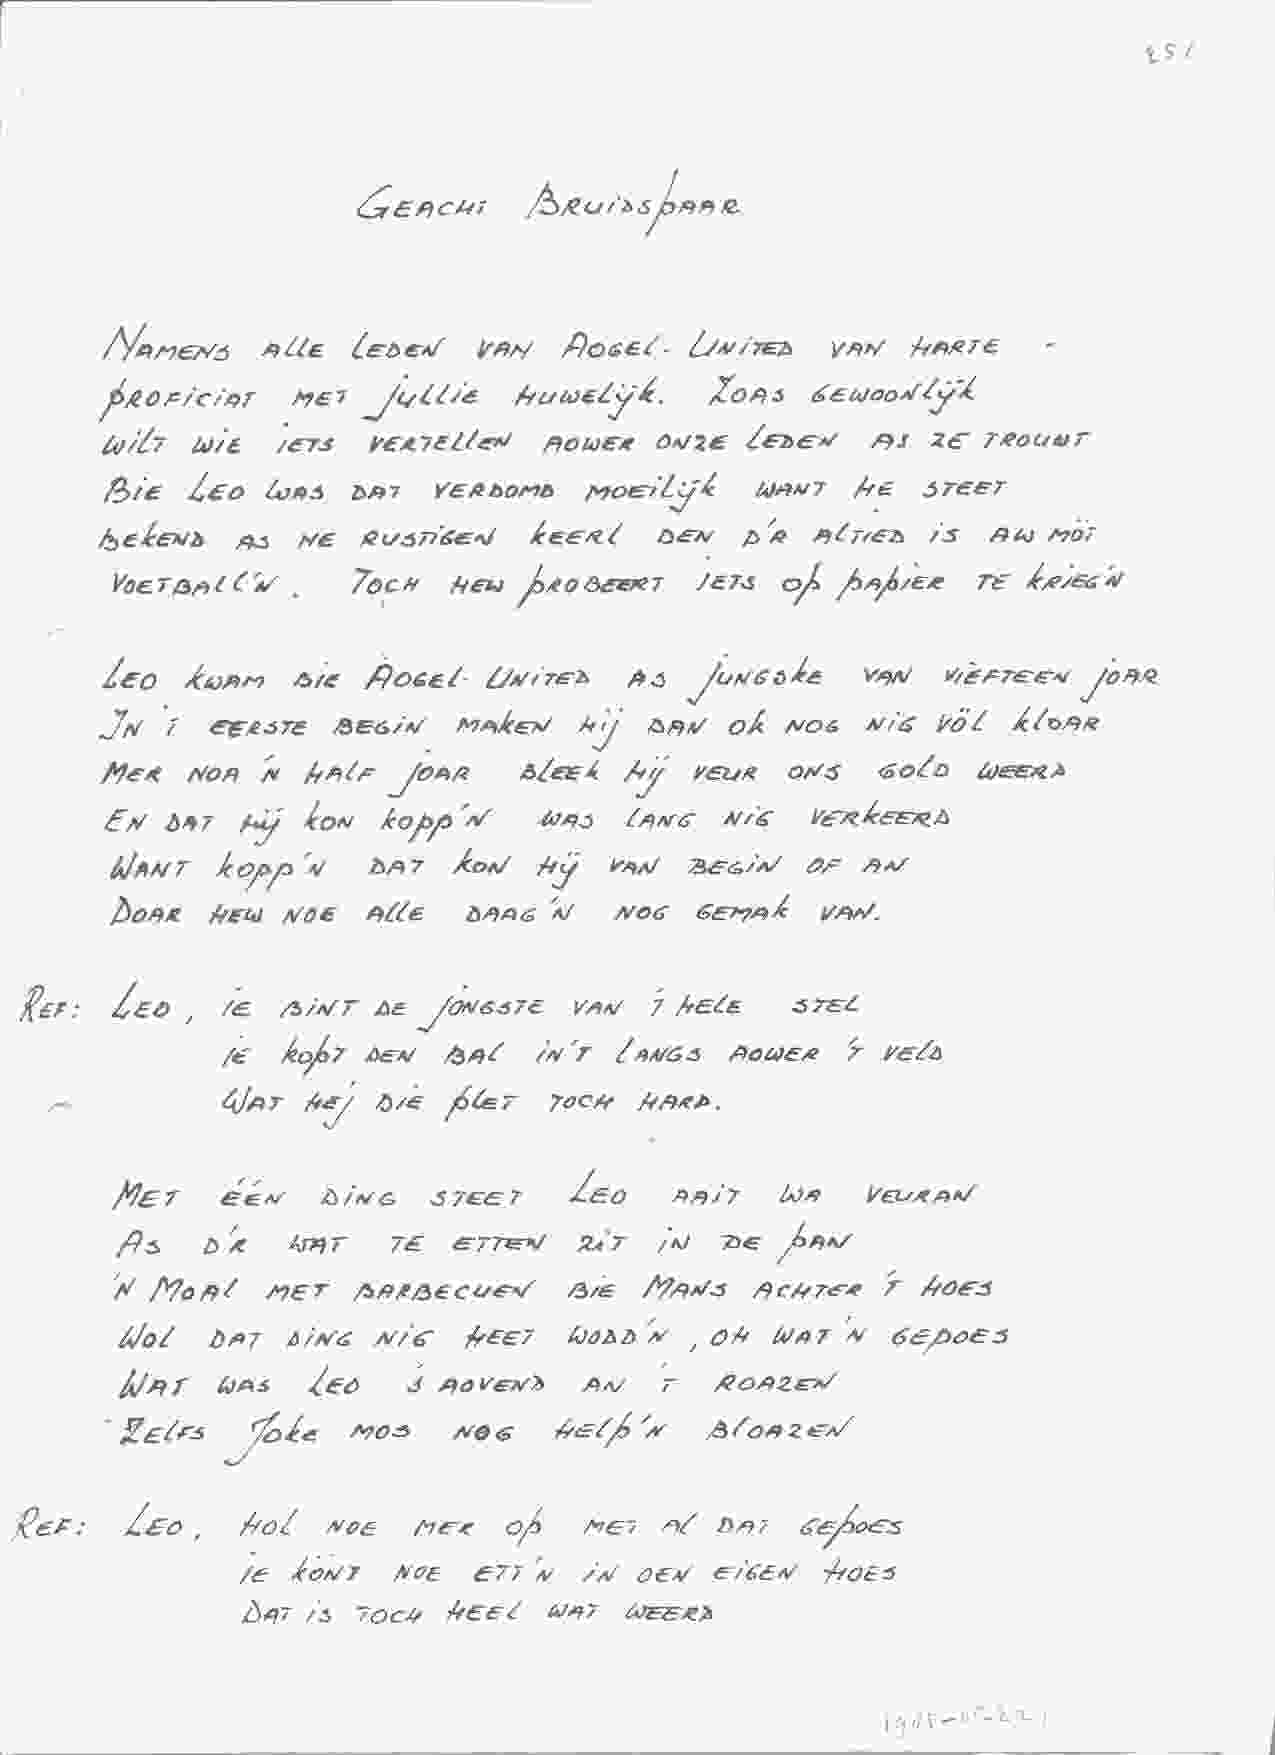 251
Geacht Bruidspaar
Namens alle leden van Aogel-United van harte -
proficiat met jullie huwelijk. Zoas gewoonlijk
wilt wie iets vertellen aower onze leden as ze trouwt
Bie Leo was dat verdomd moeilijk want he steet
bekend as ne rustigen keerl den d'r altied is aw möt
voetball'n. Toch hew probeert iets op papier te krieg'n
Leo kwam bie Aogel-United as jungske van viefteen joar
In 't eerste begin maken hij dan ok nog nig völ kloar
Mer noa 'n half joar bleek hij veur ons gold weerd
En dat hij kon kopp'n was lang nig verkeerd
Want kopp'n dat kon hij van begin of an
Doar hew noe alle daag'n nog gemak van.
Ref: Leo, ie bint de jongste van 't hele stel
ie kopt den bal in 't langs aower 't veld
Wat hej die plet toch hard.
Met één ding steet Leo aait wa veuran
As d'r wat te etten zit in de pan
'n Moal met barbecuen bie Mans achter 't hoes
Wol dat ding nig heet wodd'n, oh wat 'n gepoes
Wat was Leo 's aovend an 't roazen
Zelfs Joke mos nog help'n bloazen
Ref: Leo, hol noe mer op met al dat gepoes
ie könt noe ett'n in oen eigen hoes
Dat is toch heel wat weerd